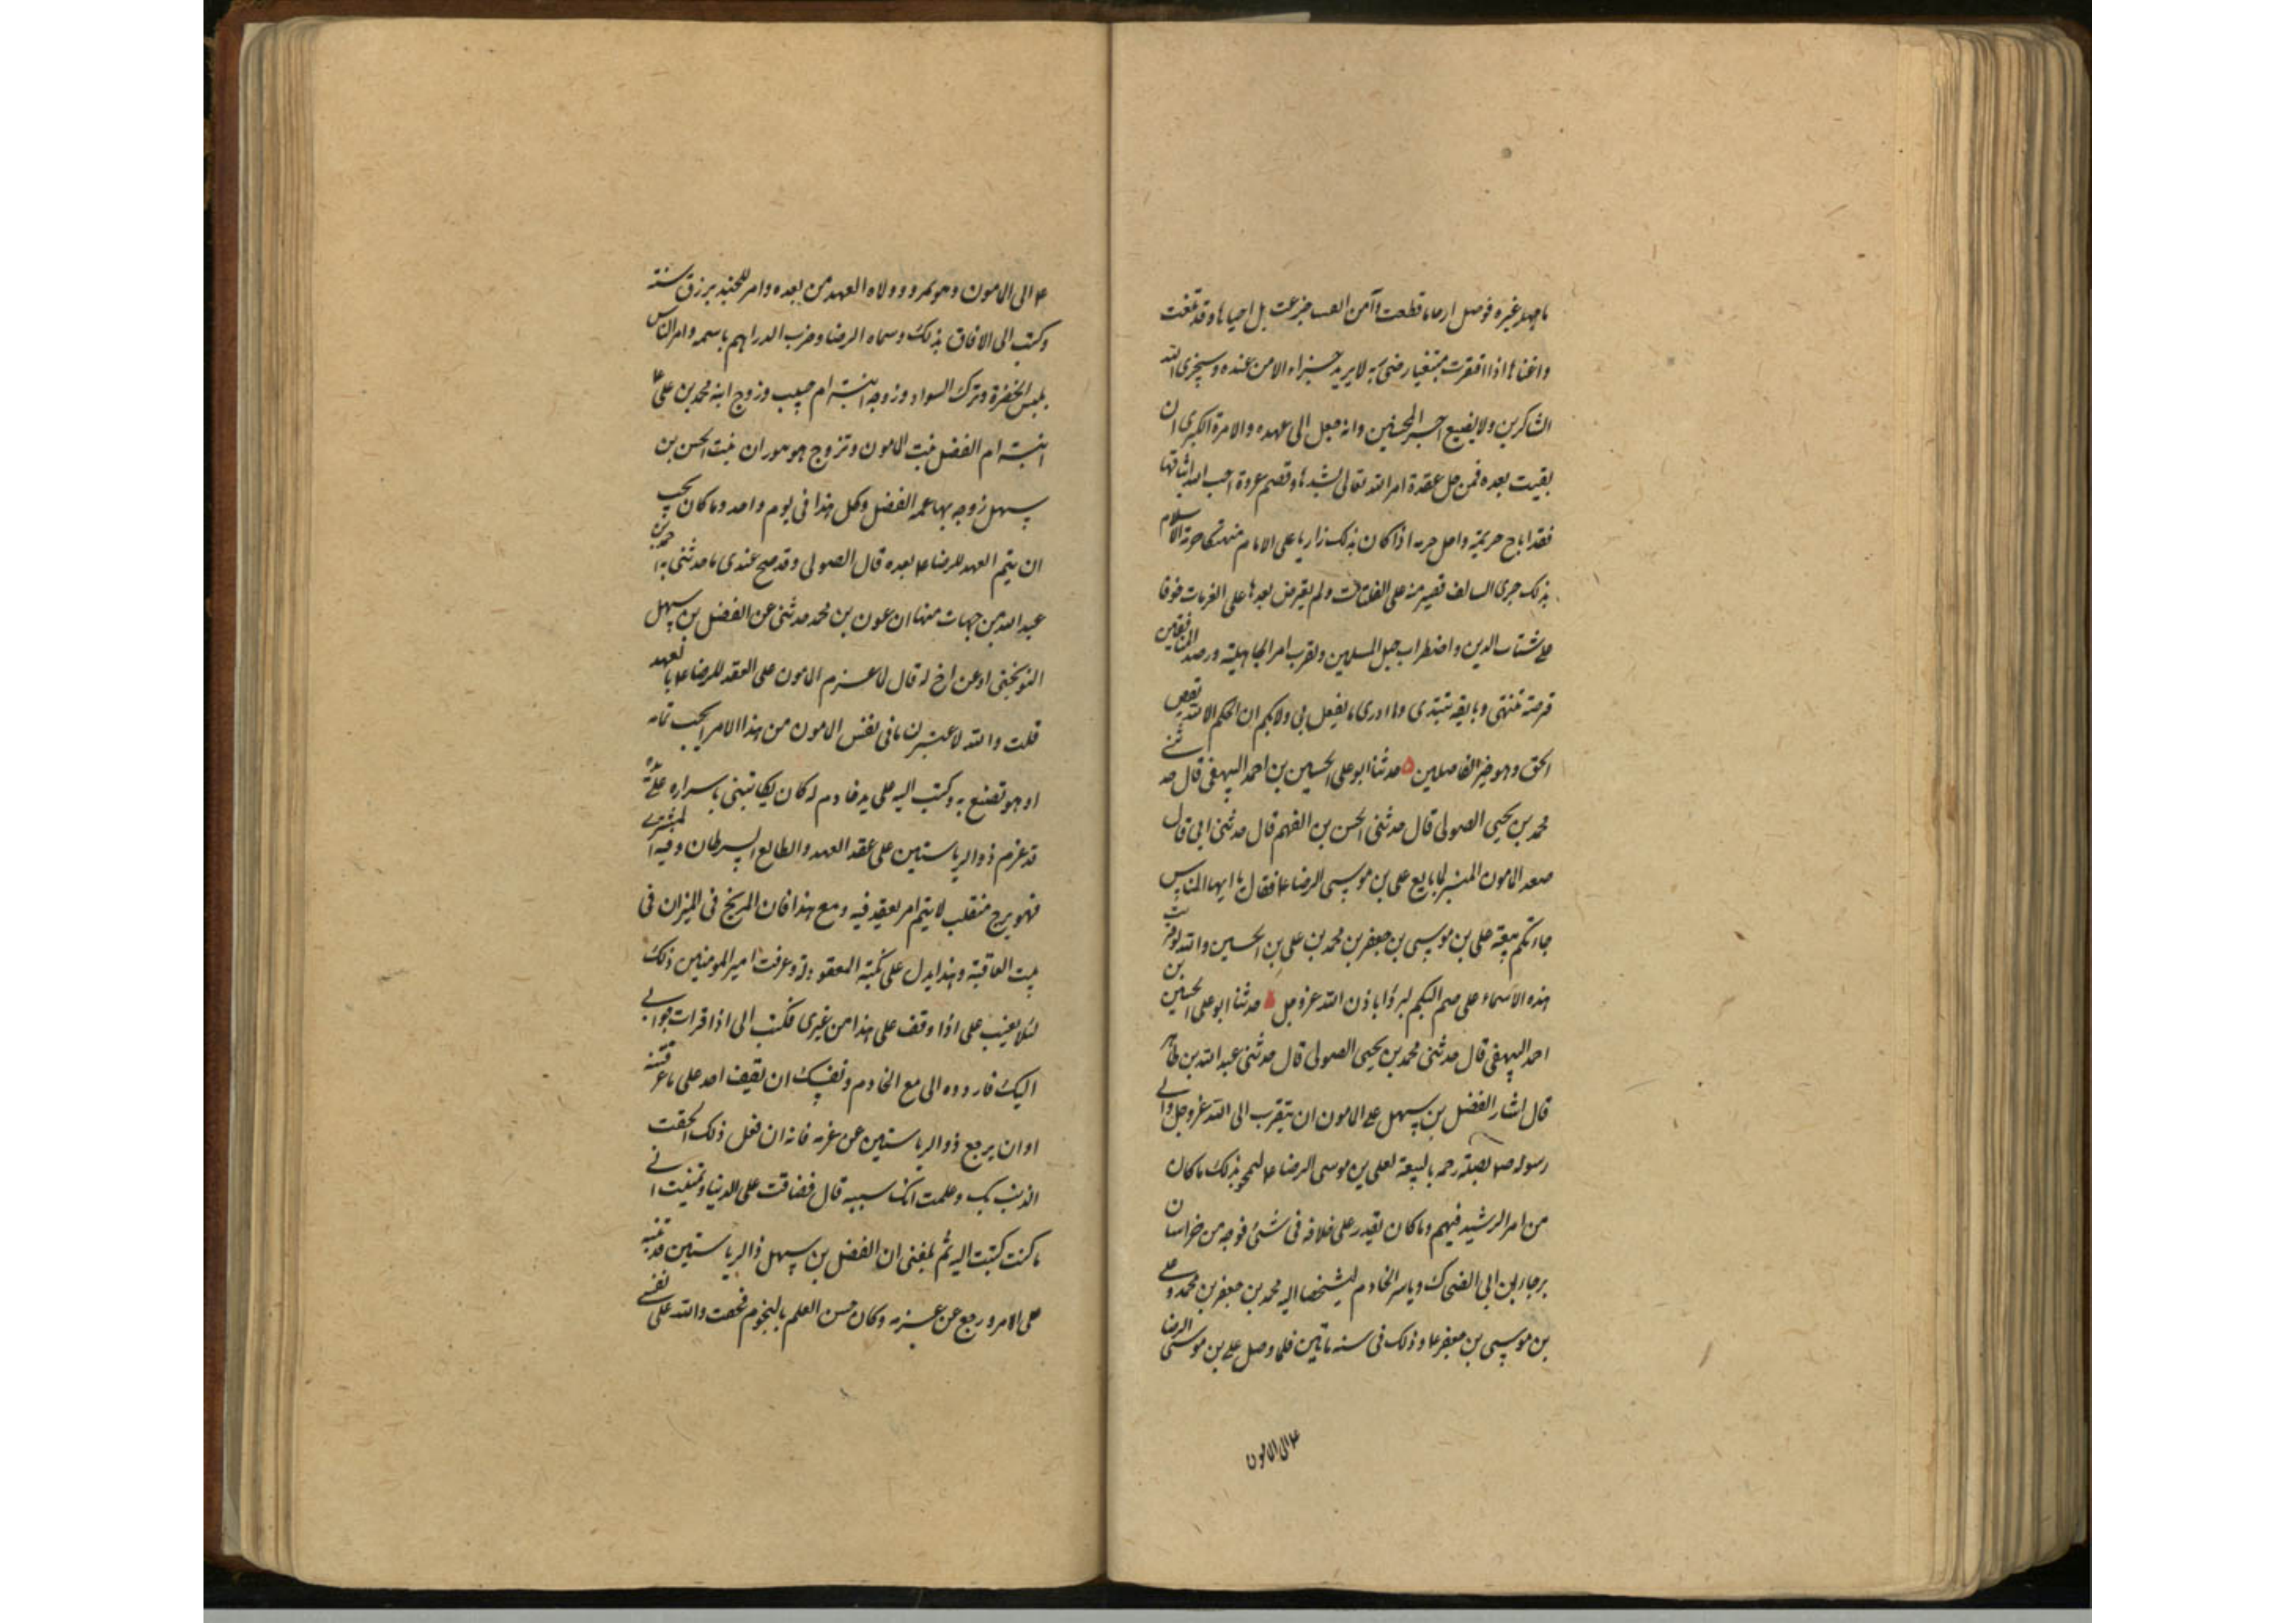 ما جهله غيره فوصل ارحاما قطعت وآمن انفسا جزعت بل احياها وقد تلفت
واغناها اذا افتقرت مبتغيا رضى ربه لا يريد جزاء الا من عنده وسيجزى الله
الشاكرين ولا يضيع اجر المحسنين وانه جعل الى عهده والامرة الكبرى ان
بقيت بعده فمن حل عقدة امر الله تعالى بشدها وقصم عروة احب الله ايثاقها
فقد اباح حريمه واحل حرمه اذا كان بذلك زاريا على الامام منهتكا حرمة الاسلام
بذلك جرى السالف فصبر منه على الفلتات ولم يعترض بعدها على الغرمات خوفا
على شتات الدين واضطراب حبل المسلمين ولقرب امر الجاهلية ورصد المنافقين
فرصة تنتهى وبايقه تبتدى وما ادرى ما يفعل بى ولا بكم ان الحكم الا لله يقص
الحق وهو خير الفاصلين ۵ حدثنا ابو على الحسين بن احمد البيهقى قال حدثنى
محمد بن يحيى الصولى قال حدثنى الحسن بن الفهم قال حدثنى ابى قال
صعد المامون المنبر لما بايع على بن موسى الرضا ع فقال يا ايها الناس
جاءتكم بيعة على بن موسى بن جعفر بن محمد بن على بن الحسين والله لو قرئت
هذه الاسماء على صم البكم لبرؤا باذن الله عز وجل ۵ حدثنا ابو على الحسين بن
احمد البيهقى قال حدثنى محمد بن يحيى الصولى قال حدثنى عبد الله بن طاهر
قال اشار الفضل بن سهل على المامون ان يتقرب الى الله عز وجل والى
رسوله ص بصلة رحمه بالبيعة لعلى بن موسى الرضا ع ليمحو بذلك ما كان
من امر الرشيد فيهم وما كان يقدر على خلافه فى شئ فوجه من خراسان
برجاء بن ابى الضحاك وياسر الخادم ليشخصا اليه محمد بن جعفر بن محمد وعلى
بن موسى بن جعفر ع وذلك فى سنه مائتين فلما وصل على بن موسى الرضا
ع الى المامون
ع الى المامون وهو بمرو وولاه العهد من بعده وامر للجند برزق سنة
وكتب الى الافاق بذلك وسماه الرضا وضرب الدراهم باسمه وامر الناس
بلبس الخضرة وترك السواد وزوجه ابنته ام حبيب وزوج ابنه محمد بن على ع
ابنته ام الفضل بنت المامون وتزوج هو بوران بنت الحسن بن
سهل زوجه بها عمه الفضل وكل هذا فى يوم واحد وما كان يحب
ان يتم العهد للرضا ع بعده قال الصولى وقد صح عندى ما حدثنى به احمد بن
عبد الله من جهات منها ان عون بن محمد حدثنى عن الفضل بن سهل
النوبختى او عن اخ له قال لما عزم المامون على العقد للرضا ع بالعهد
قلت والله لاعتبرن ما فى نفس المامون من هذا الامر ايحب تمامه
او هو تصنع به وكتبت اليه على يد خادم له كان يكاتبنى باسراره على يده
قد عزم ذو الرياستين على عقد العهد والطالع السرطان وفيه المشترى
فهو برج منقلب لا يتم امر يعقد فيه ومع هذا فان المريخ فى الميزان فى
بيت العاقبة وهذا يدل على نكبة المعقود له وعرفت امير المومنين ذلك
لئلا يعتب على اذا وقف على هذا من غيرى فكتب الى اذا قرات جوابى
اليك فاردده الى مع الخادم ونفسك ان يقف احد على ما عرفتنيه
او ان يرجع ذو الرياستين عن عزمه فانه ان فعل ذلك الحقت
الذنب بك وعلمت انك سببه قال فضاقت على الدنيا وتمنيت انى
ما كنت كتبت اليه ثم بلغنى ان الفضل بن سهل ذا الرياستين قد تنبه
على الامر ورجع عن عزمه وكان حسن العلم بالنجوم فخفت والله على نفسى